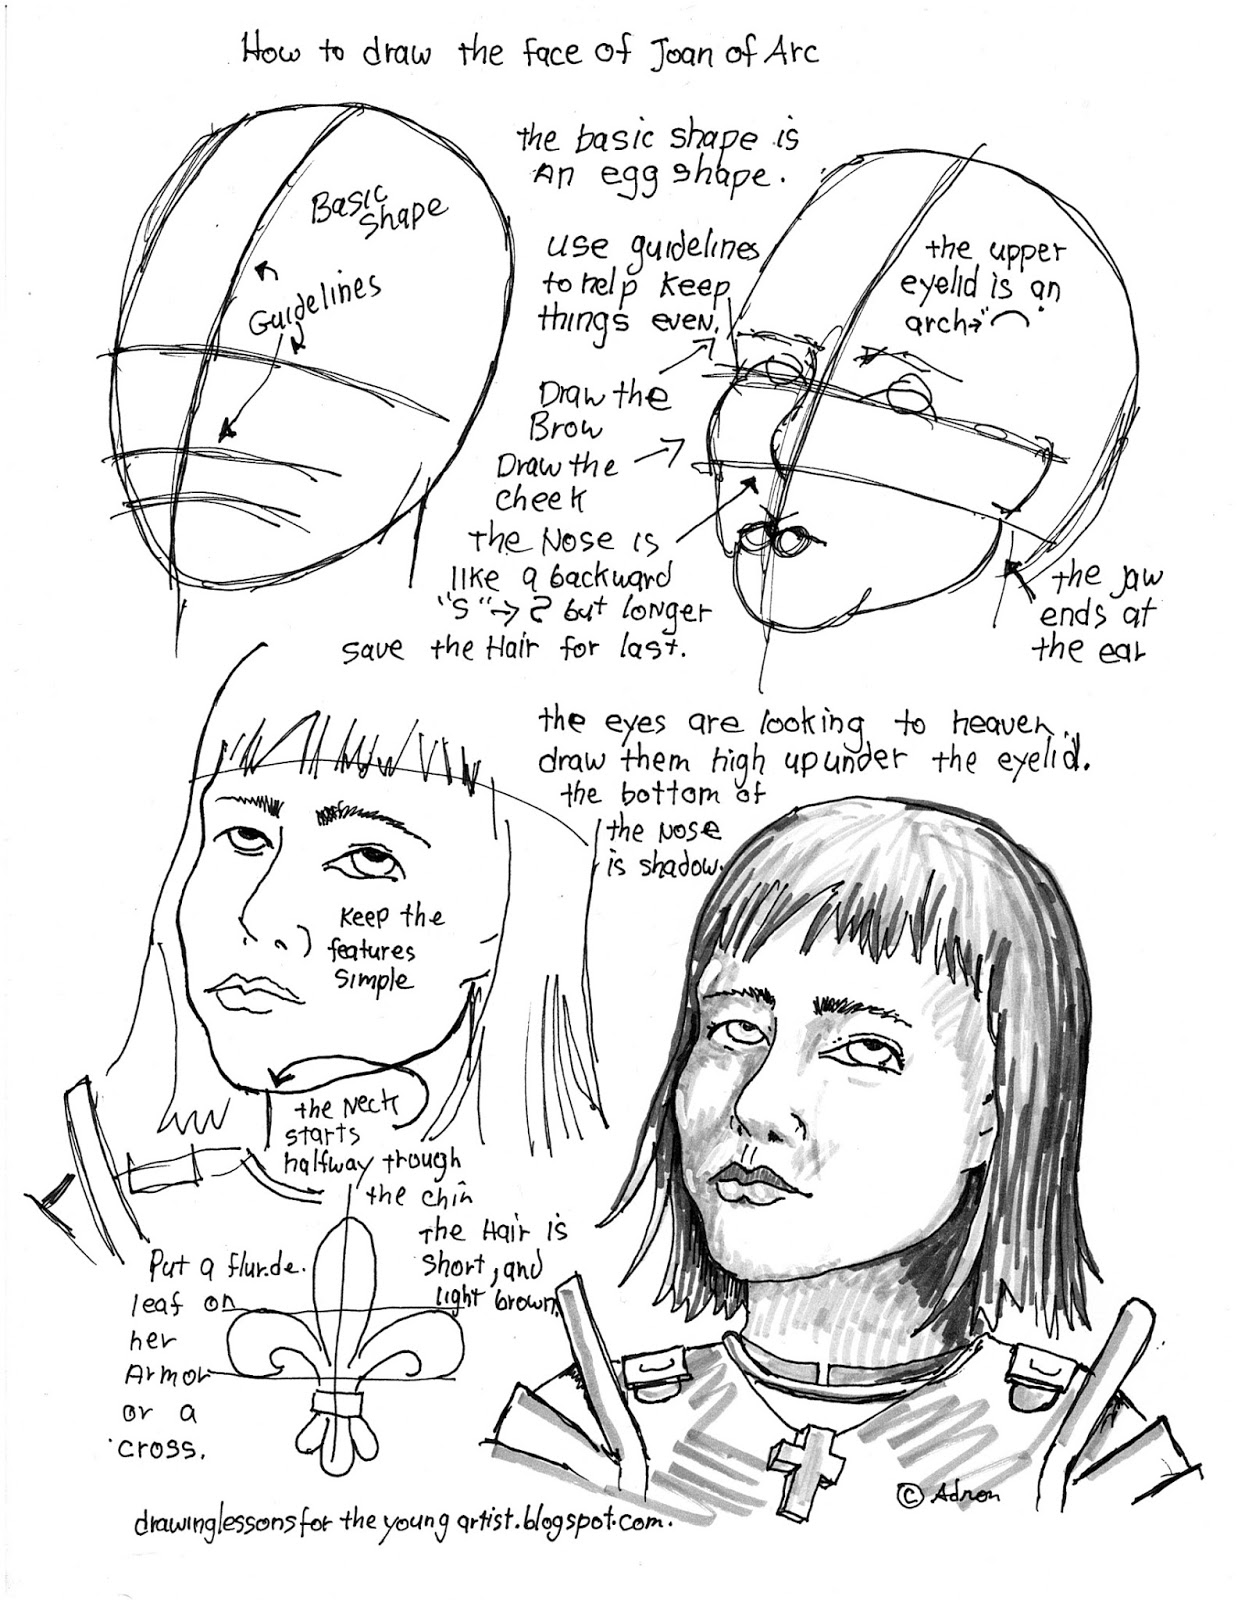 How to draw the face of Joan of Arc
the basic shape is
An egg shape.
Basic
shape
Guidelines
use guidelines
to help keep
things even.
the upper
eyelid is an
arch→"⌒"
Draw the
Brow
Draw the
cheek
the Nose is
like a backward
"S"→Ƨ but longer
save the Hair for last.
the jaw
ends at
the ear
the eyes are looking to heaven.
draw them high up under the eyelid.
the bottom of
the Nose
is shadow.
Keep the
features
simple
the Neck
starts
halfway trough
the chin
the Hair is
short, and
light brown
Put a flur.de.
leaf on
her
Armor
or a
cross.
© Adron
drawinglessonsfortheyoungartist.blogspot.com.